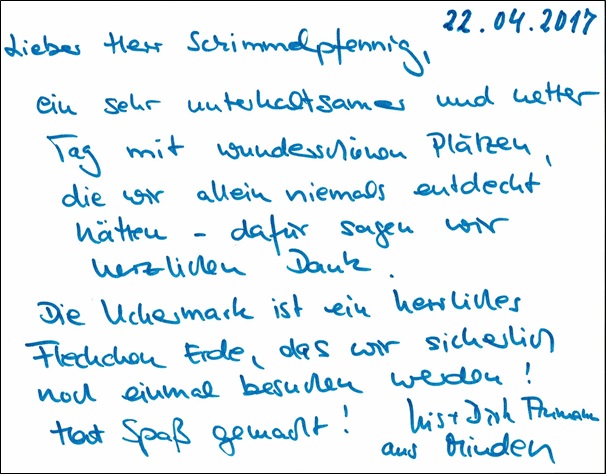 22.04.2017
Lieber Herr Scrimmelpfennig,
ein sehr unterhaltsamer und netter
Tag mit wunderschönen Plätzen,
die wir allein niemals entdeckt
hätten - dafür sagen wir
herzlichen Dank.
Die Uckermark ist ein herrliches
Fleckchen Erde, das wir sicherlich
noch einmal besuchen werden!
Hat Spaß gemacht!
+ Dirk
aus Minden